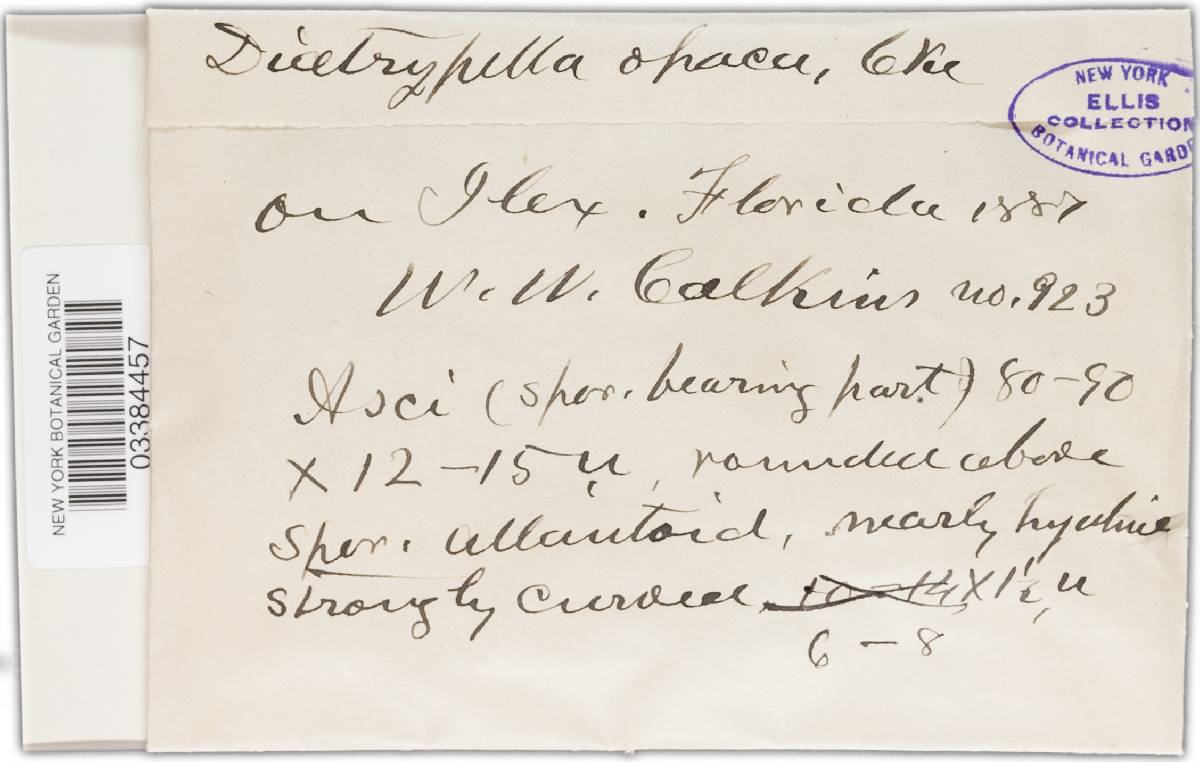 Diatrypella opaca, Cke
NEW YORK
ELLIS
COLLECTION
BOTANICAL GARDE
on Ilex. Florida 1887
W. W. Calkins no. 923
Asci (spor. bearing part) 80-90
x 12-15 µ, rounded above
Spor. allantoid, nearly hyaline
strongly curved, 10-14 x 1½ µ
6-8
NEW YORK BOTANICAL GARDEN
03384457